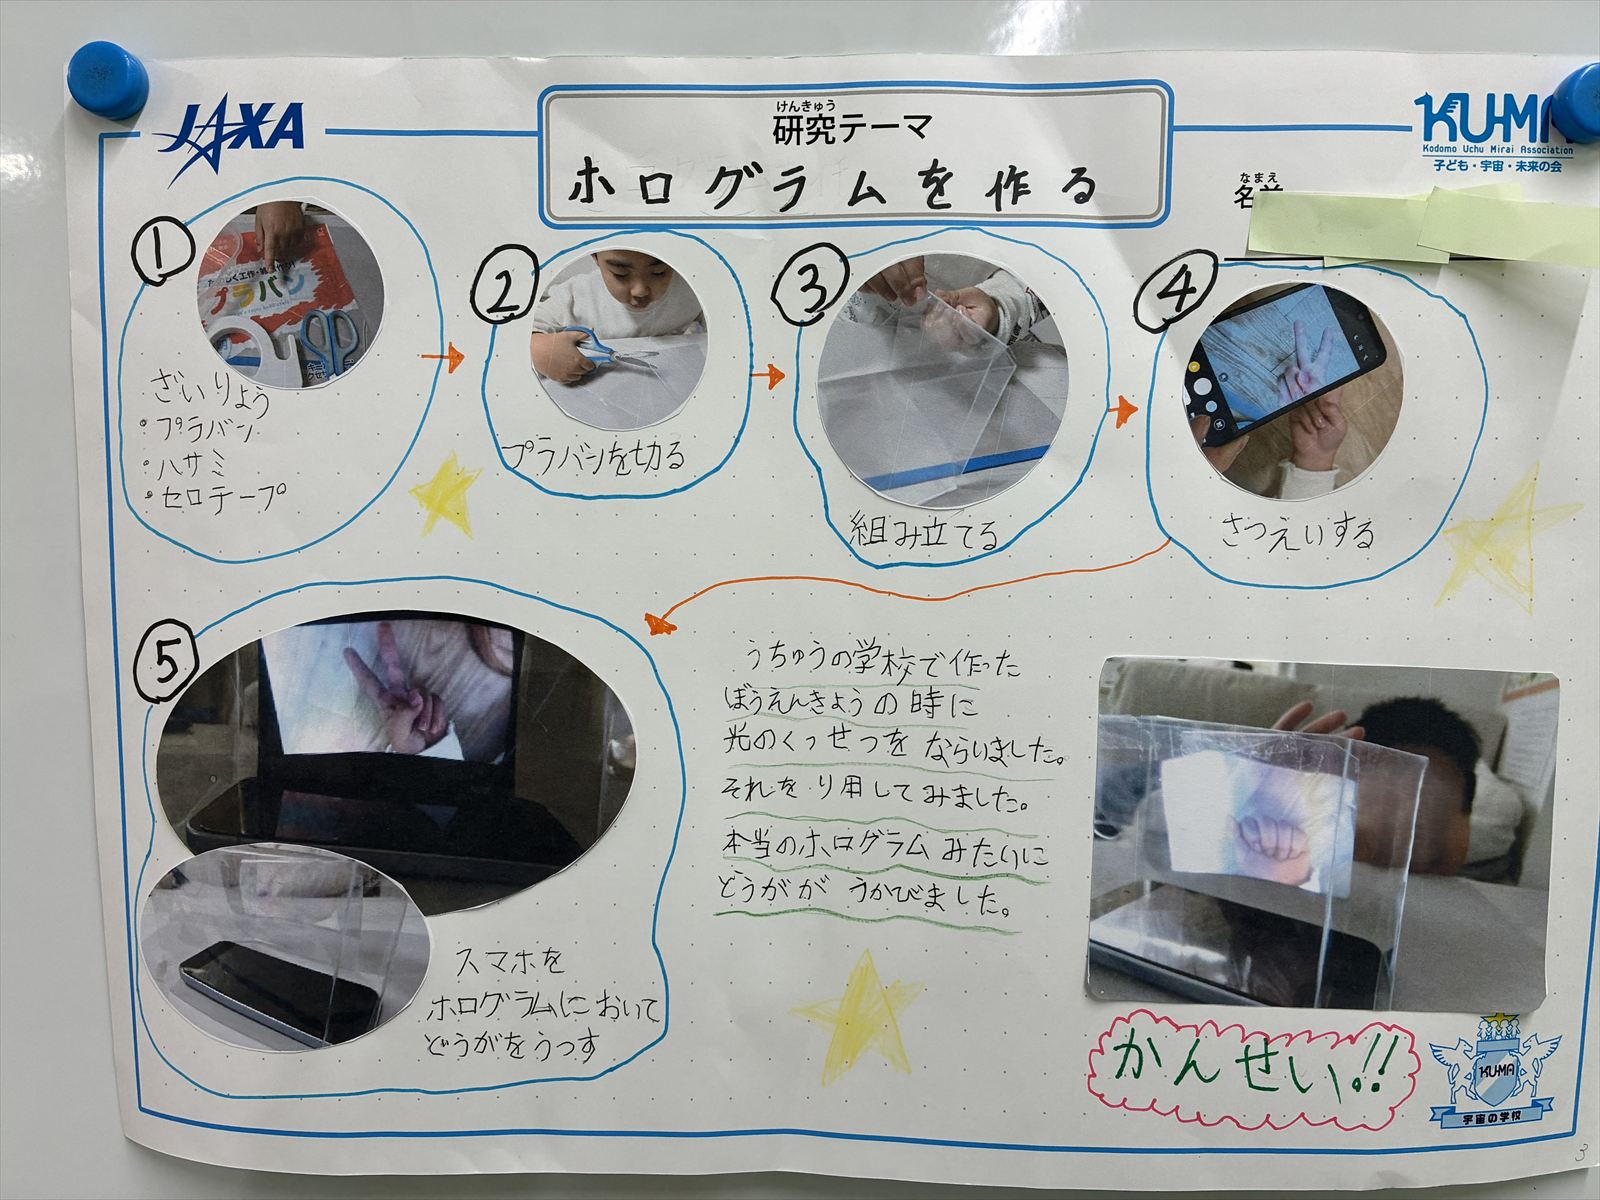 JAXA
けんきゅう
研究テーマ
ホログラムを作る
KU-MA
Kodomo Uchu Mirai Association
子ども・宇宙・未来の会
なまえ
名前
①
プラバン
ざいりょう
・プラバン
・ハサミ
・セロテープ
②
プラバンを切る
③
組み立てる
④
さつえいする
⑤
スマホを
ホログラムにおいて
どうがをうつす
うちゅうの学校で作った
ぼうえんきょうの時に
光のくっせつをならいました。
それをり用してみました。
本当のホログラムみたいに
どうががうかびました。
かんせい!!
KU-MA
宇宙の学校
3